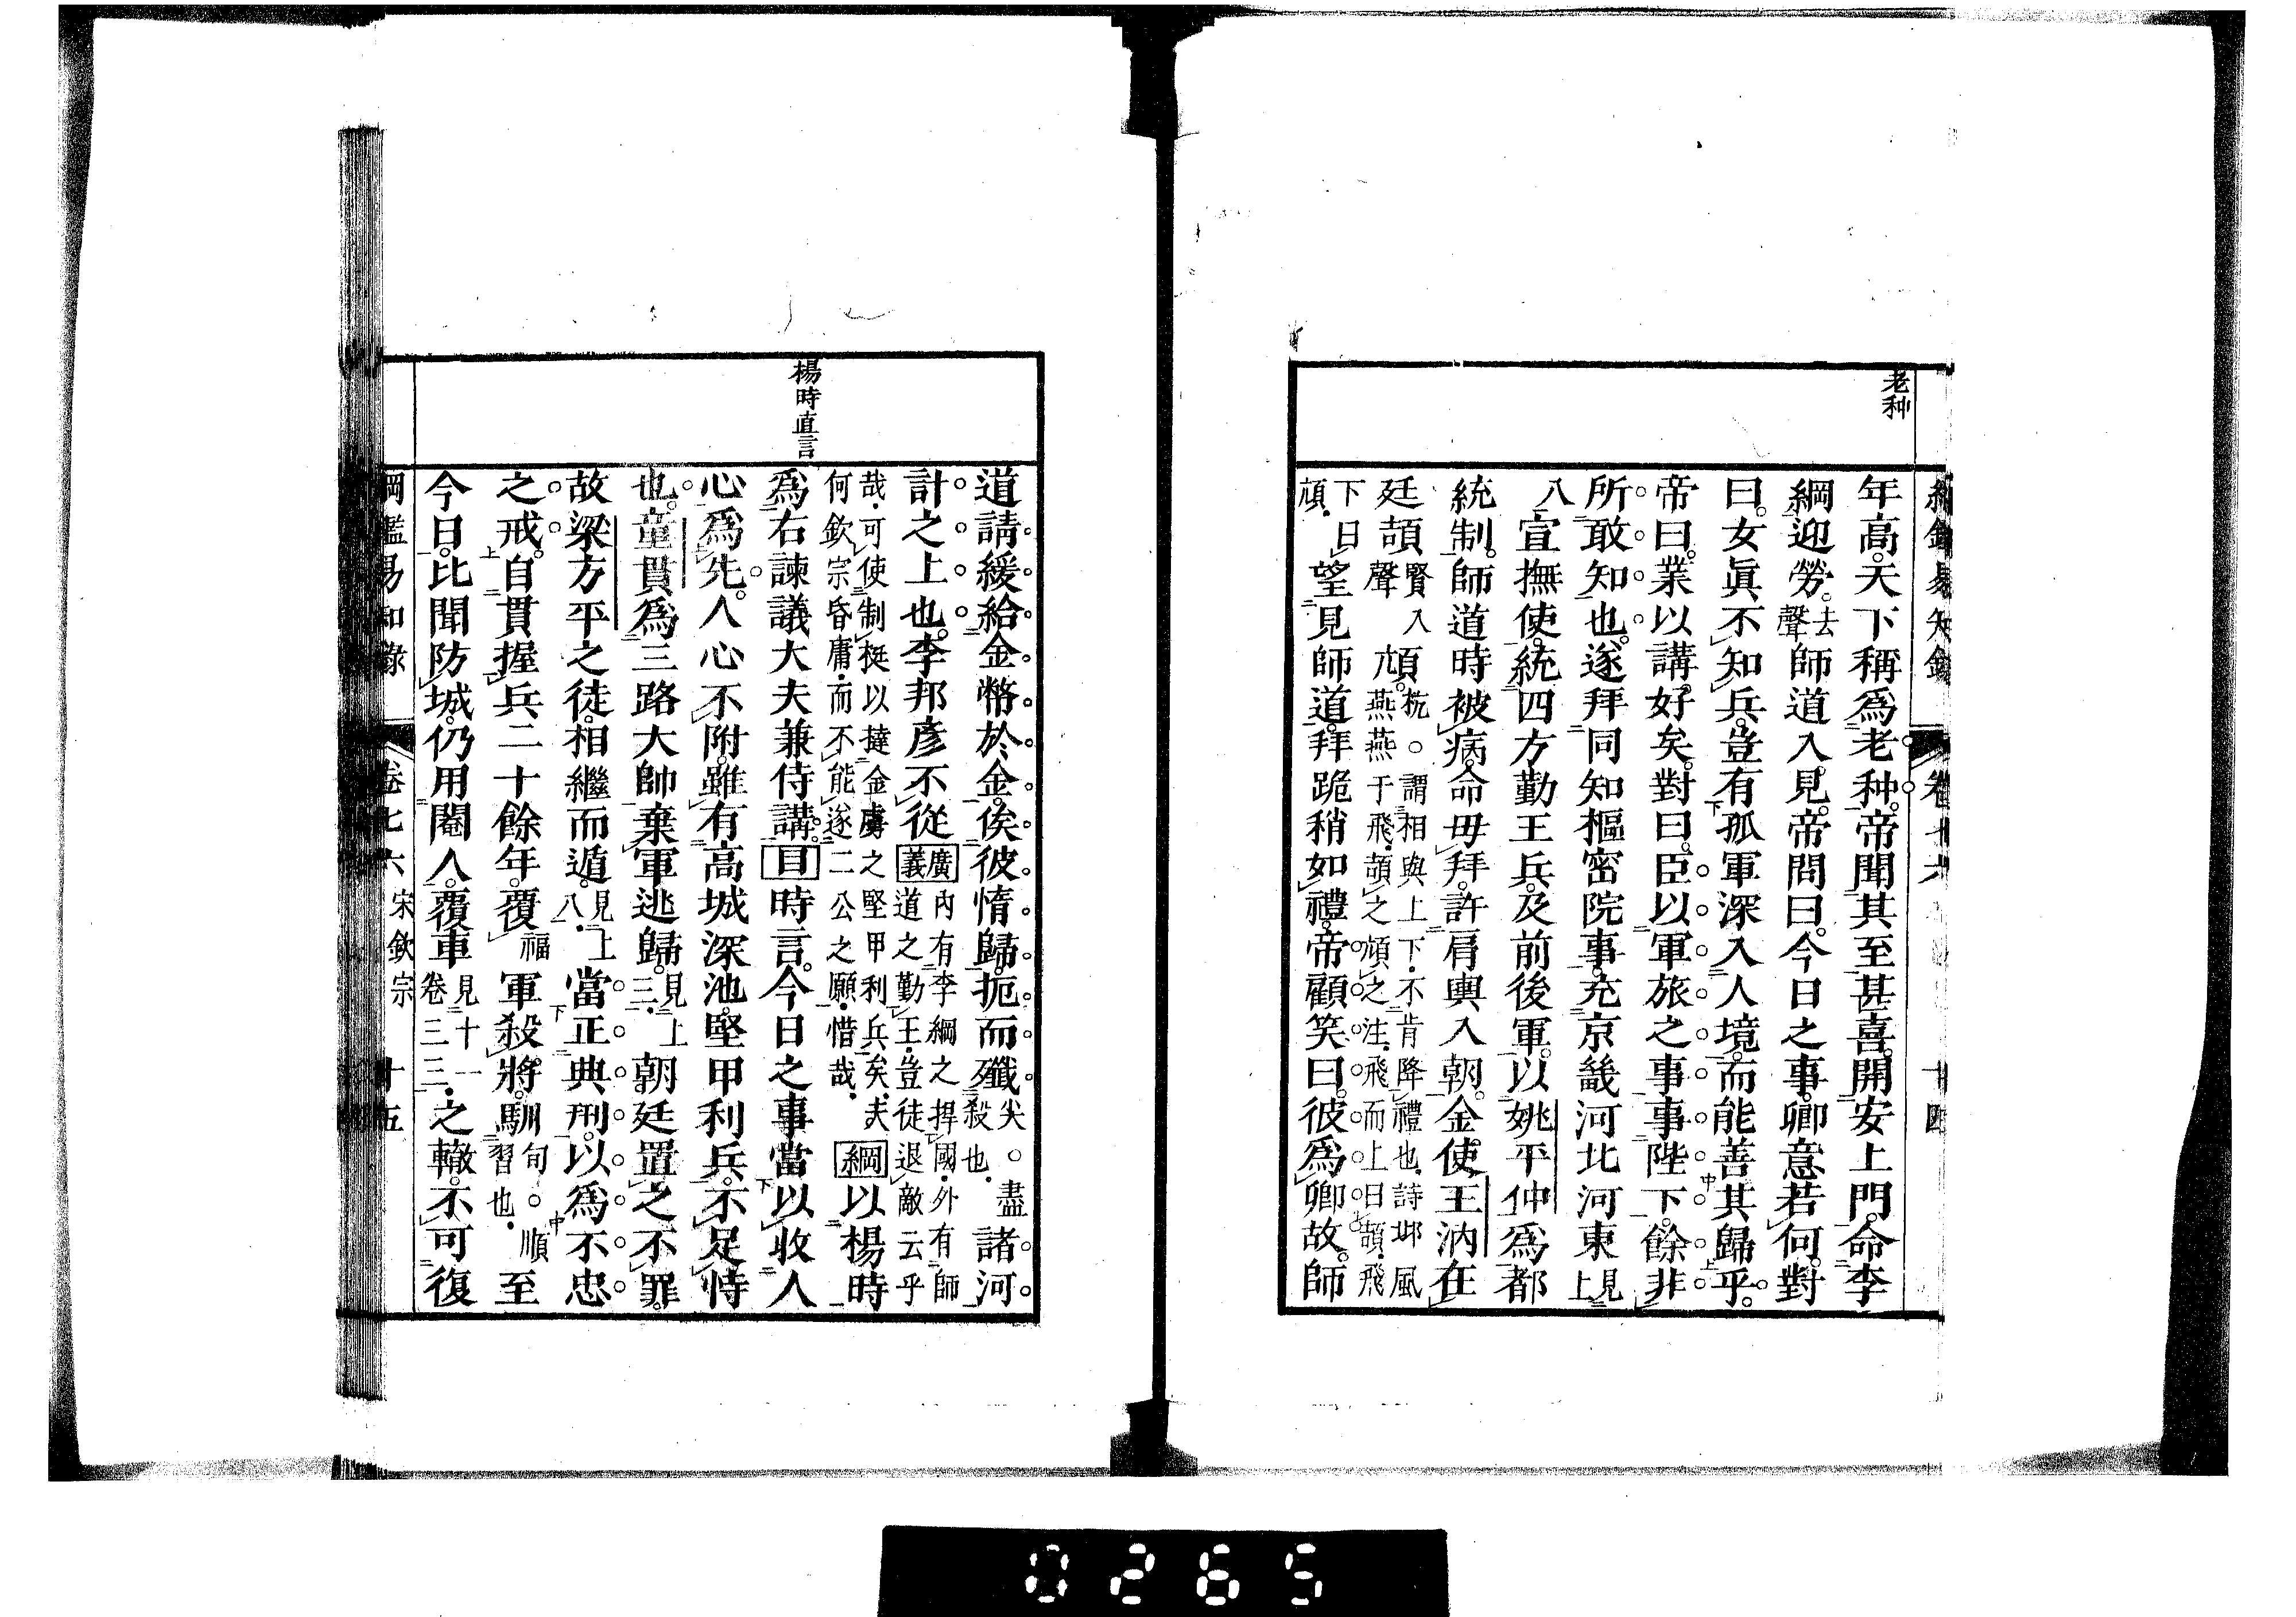 老种
年高天下稱爲老种帝聞其至甚喜開安上門命李
綱迎勞去聲師道入見帝問曰今日之事卿意若何對
曰女眞不知兵豈有孤軍深入人境而能善其歸乎
帝曰業以講好矣對曰臣以軍旅之事事陛下餘非
所敢知也遂拜同知樞密院事充京畿河北河東見上
八宣撫使統四方勤王兵及前後軍以姚平仲爲都
統制師道時被病命毋拜許肩輿入朝金使王汭在
廷頡賢入聲頏杭○謂相與上下不肯降禮也詩邶風燕燕于飛頡之頏之注飛而上曰頡飛
下曰頏望見師道拜跪稍如禮帝顧笑曰彼爲卿故師
卷七十六
十四
楊時直言
道請緩給金幣於金俟彼惰歸扼而殲尖○盡殺也諸河
計之上也李邦彥不從廣義內有李綱之捍國外有師道之勤王豈徒退敵云乎
哉可使制梃以撻金虜之堅甲利兵矣夫何欽宗昏庸而不能遂二公之願惜哉綱以楊時
爲右諫議大夫兼侍講目時言今日之事當以收人
心爲先人心不附雖有高城深池堅甲利兵不足恃
也童貫爲三路大帥棄軍逃歸見上三朝廷置之不罪
故梁方平之徒相繼而遁見上八當正典刑以爲不忠
之戒自貫握兵二十餘年覆福軍殺將馴旬○順習也至
今日比聞防城仍用閹人覆車見十一卷三三之轍不可復
綱鑑易知錄
卷七六
宋欽宗
十五
0265